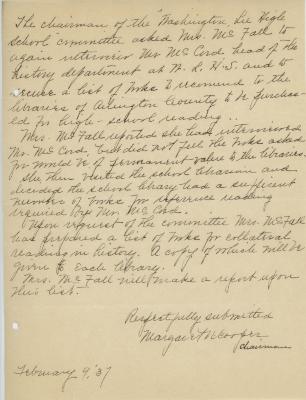 The chairman of the "Washington Lee High
School" committee asked Mrs. McFall to
again interview Mr. McCord head of the
history department at W. L. H-S. and to
secure a list of books to recomend to the
libraries of Arlington County to be purchas-
ed for high-school reading..
Mrs. McFall reported she had interviewed
Mr. McCord, but did not feel the books asked
for would be of permanent value to the libraries.
She then visited the school librarian and
decided the school library had a sufficent
number of books for reference reading
required by Mr. McCord.
Upon request of the committee Mrs. McFall
has prepared a list of books for collateral
reading in history. A copy of which will be
given to each library.
Mrs. McFall will make a report upon
this list.
Respectfully submitted
Margaret N Cooper
chairman
February 9, '37